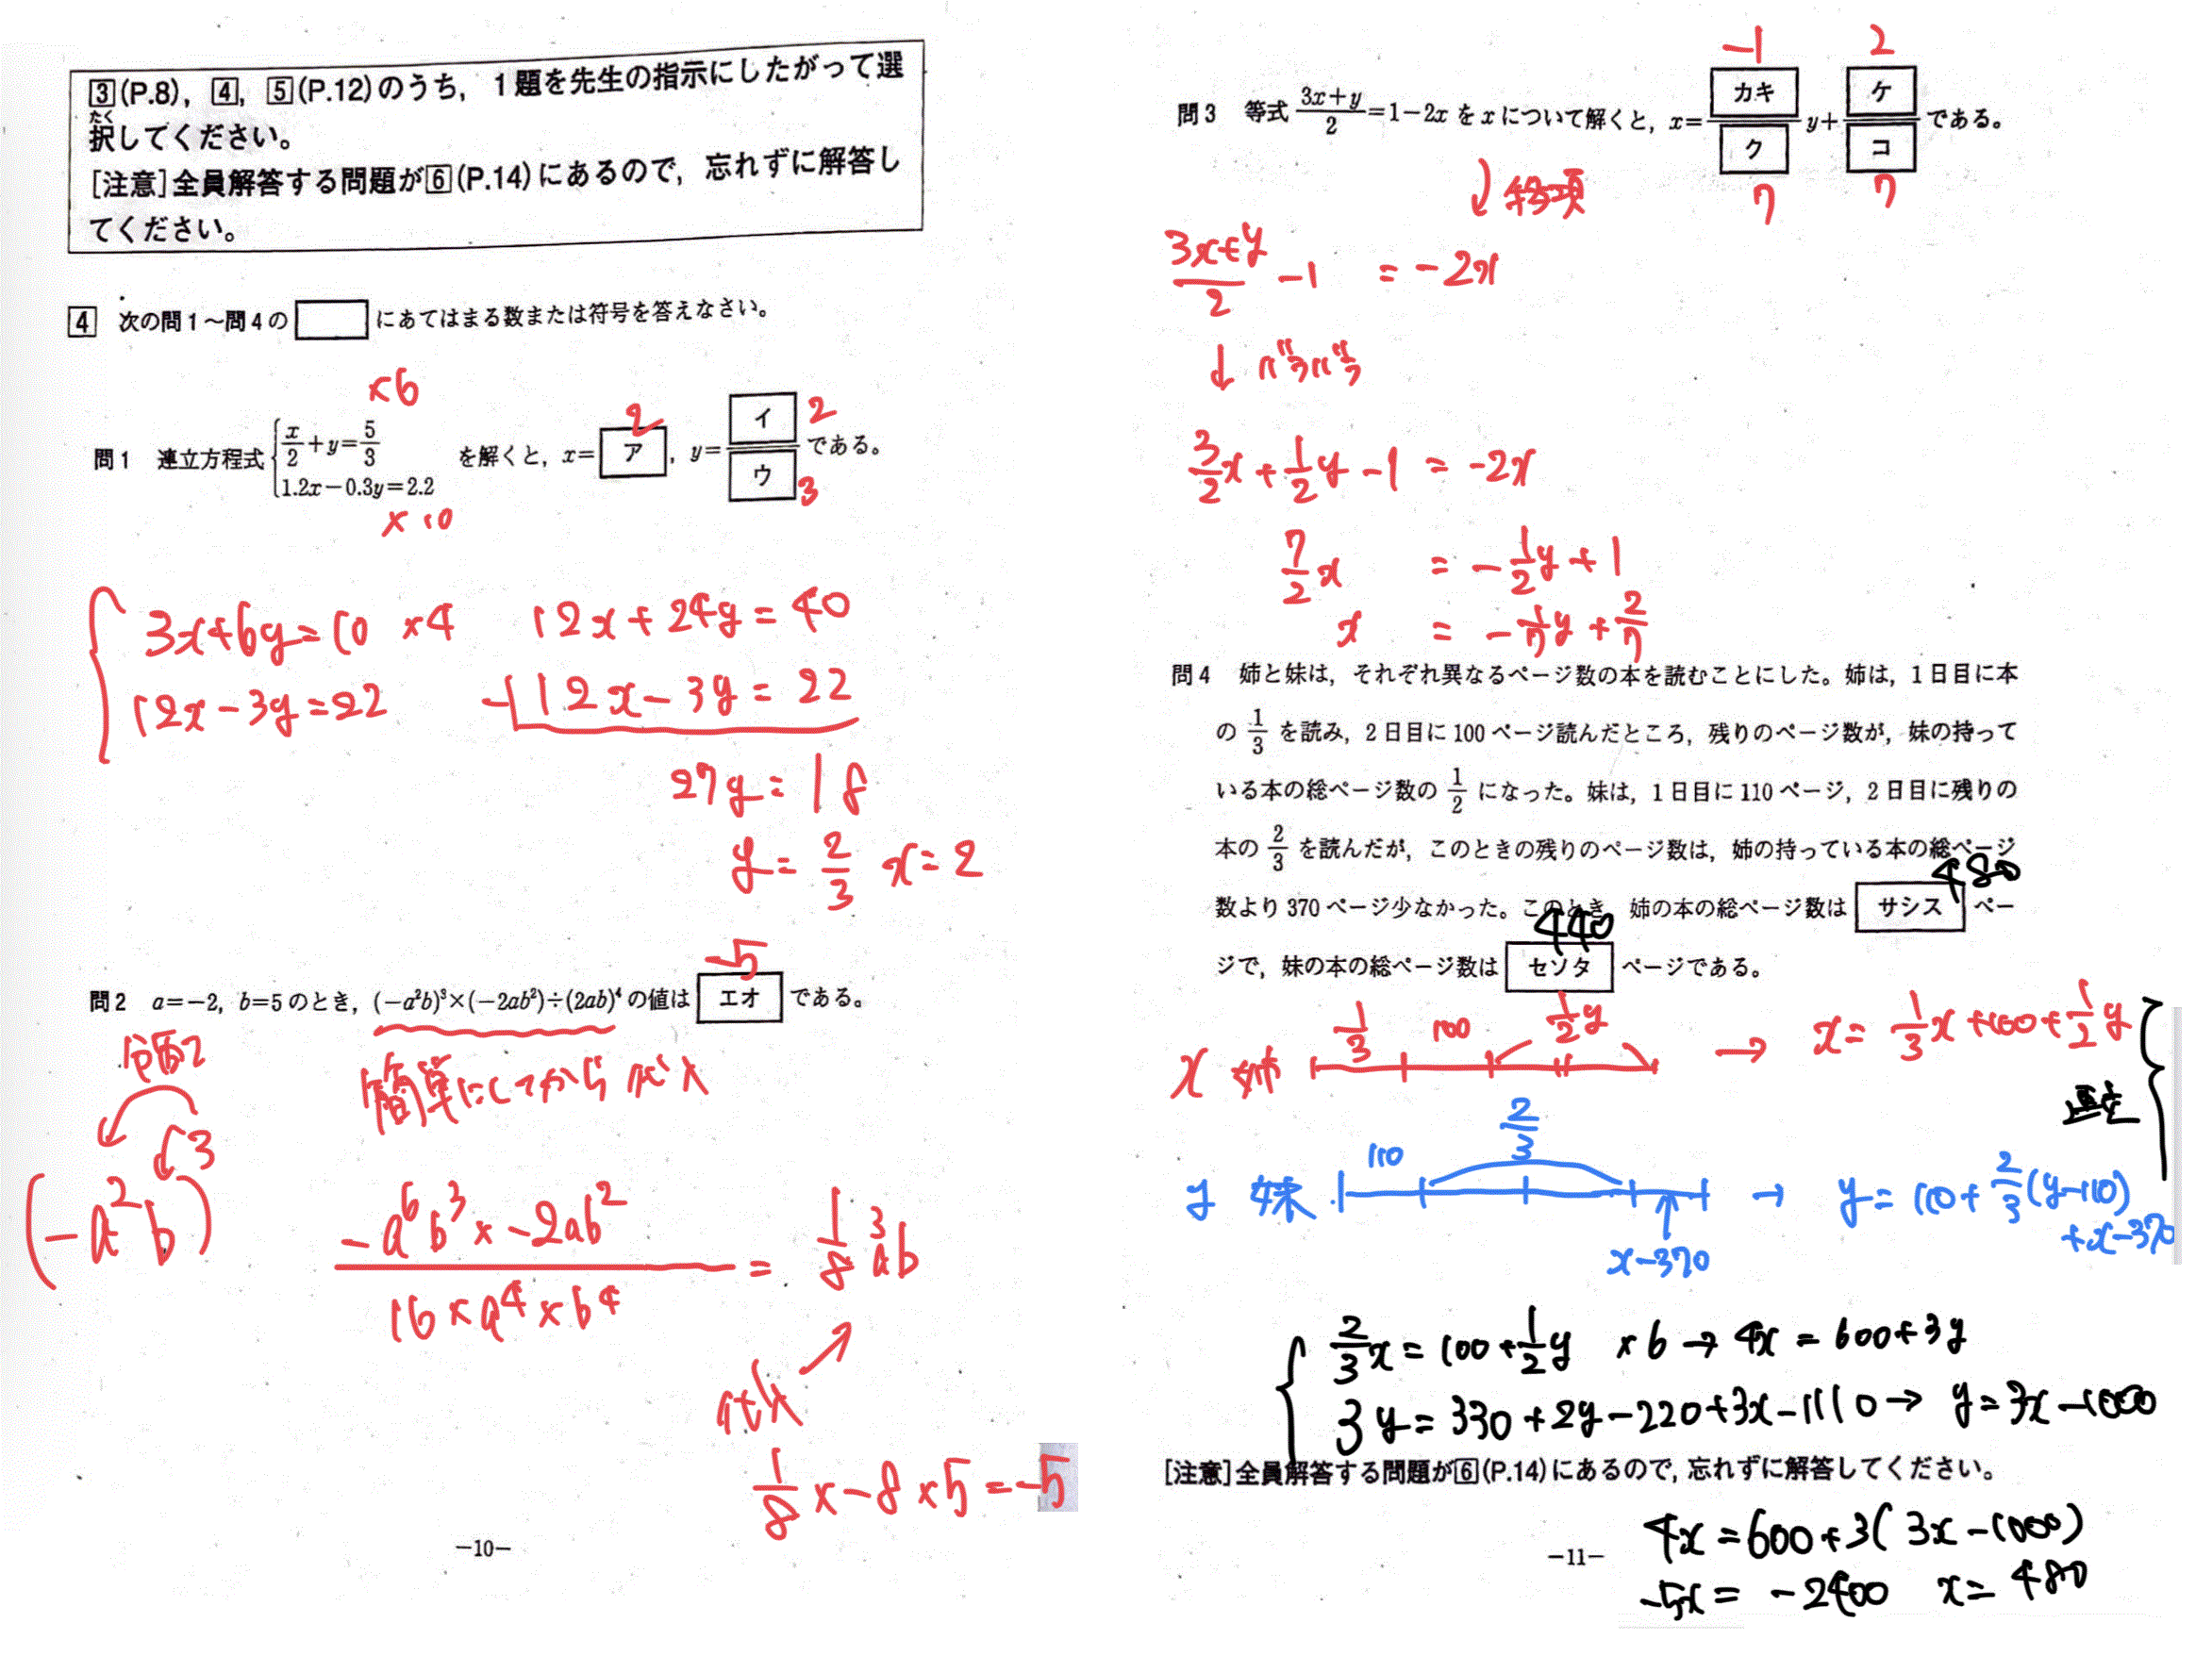 3(P.8), 4, 5(P.12)のうち, 1題を先生の指示にしたがって選
たく
択してください。
[注意]全員解答する問題が6(P.14)にあるので, 忘れずに解答し
てください。
4 次の問1〜問4の□にあてはまる数または符号を答えなさい。
×6
問1 連立方程式 { x/2+y=5/3 1.2x−0.3y=2.2 を解くと, x=ア, y=イ/ウ である。
2
2
3
×10
3x+6y=10 ×4 12x+24y=40
12x−3y=22 −12x−3y=22
27y=18
y=2/3 x=2
−5
問2 a=−2, b=5のとき, (−a²b)³×(−2ab²)÷(2ab)⁴の値はエオである。
分配
簡単にしてから代入
(−a²b)³
−a⁶b³×−2ab²/16×a⁴×b⁴ = 1/8 a³b
代入
1/8×−8×5=−5
−10−
−1 2
問3 等式 (3x+y)/2=1−2x をxについて解くと, x=カキ/ク y+ケ/コ である。
7 7
移項
(3x+y)/2 −1 = −2x
↓ バラバラ
3/2x+1/2y−1 = −2x
7/2x = −1/2y+1
x = −1/7y+2/7
問4 姉と妹は, それぞれ異なるページ数の本を読むことにした。姉は, 1日目に本
の1/3を読み, 2日目に100ページ読んだところ, 残りのページ数が, 妹の持って
いる本の総ページ数の1/2になった。妹は, 1日目に110ページ, 2日目に残りの
本の2/3を読んだが, このときの残りのページ数は, 姉の持っている本の総ページ
480
数より370ページ少なかった。このとき, 姉の本の総ページ数はサシスペー
440
ジで, 妹の本の総ページ数はセソタページである。
x 姉 1/3 100 1/2y → x=1/3x+100+1/2y
連立
y 妹 110 2/3 x−370 → y=110+2/3(y−110)
+x−370
2/3x=100+1/2y ×6→4x=600+3y
3y=330+2y−220+3x−1110→ y=3x−1000
[注意]全員解答する問題が6(P.14)にあるので, 忘れずに解答してください。
4x=600+3(3x−1000)
−11−
−5x=−2400 x=480